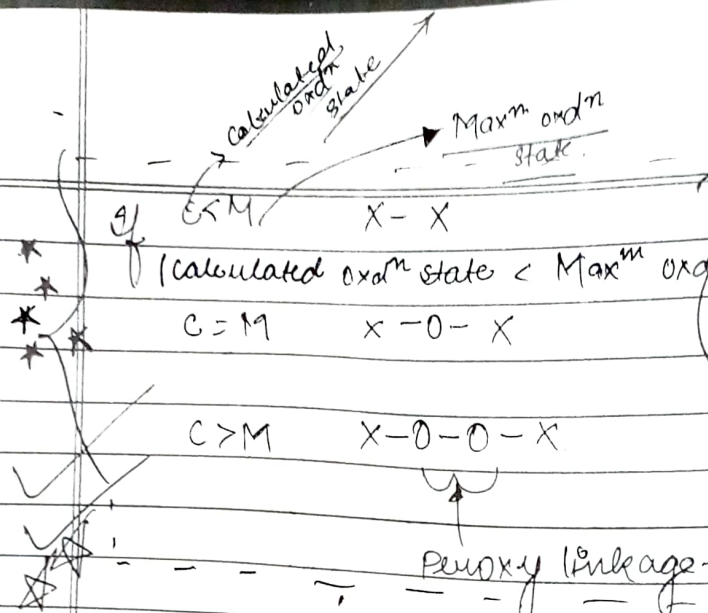 Calculated
oxdⁿ
state
Maxᵐ oxdⁿ
state.
If C<M X - X
(Calculated oxdⁿ state < Maxᵐ oxd
C = M X - O - X
C > M X - O - O - X
Peroxy linkage